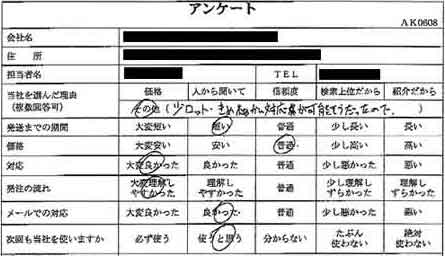 アンケート
AK0608
会社名
住 所
担当者名 TEL
当社を選んだ理由 価格 人から聞いて 信頼度 検索上位だから 紹介だから
(複数回答可) その他 (少ロット・きめ細かい対応が可能そうだったので、)
発送までの期間 大変短い 短い 普通 少し長い 長い
価格 大変安い 安い 普通 少し高い 高い
対応 大変良かった 良かった 普通 少し悪かった 悪い
発注の流れ 大変理解しやすかった 理解しやすかった 普通 少し理解しずらかった 理解しずらかった
メールでの対応 大変良かった 良かった 普通 少し悪かった 悪い
次回も当社を使いますか 必ず使う 使うと思う 分からない たぶん使わない 絶対使わない